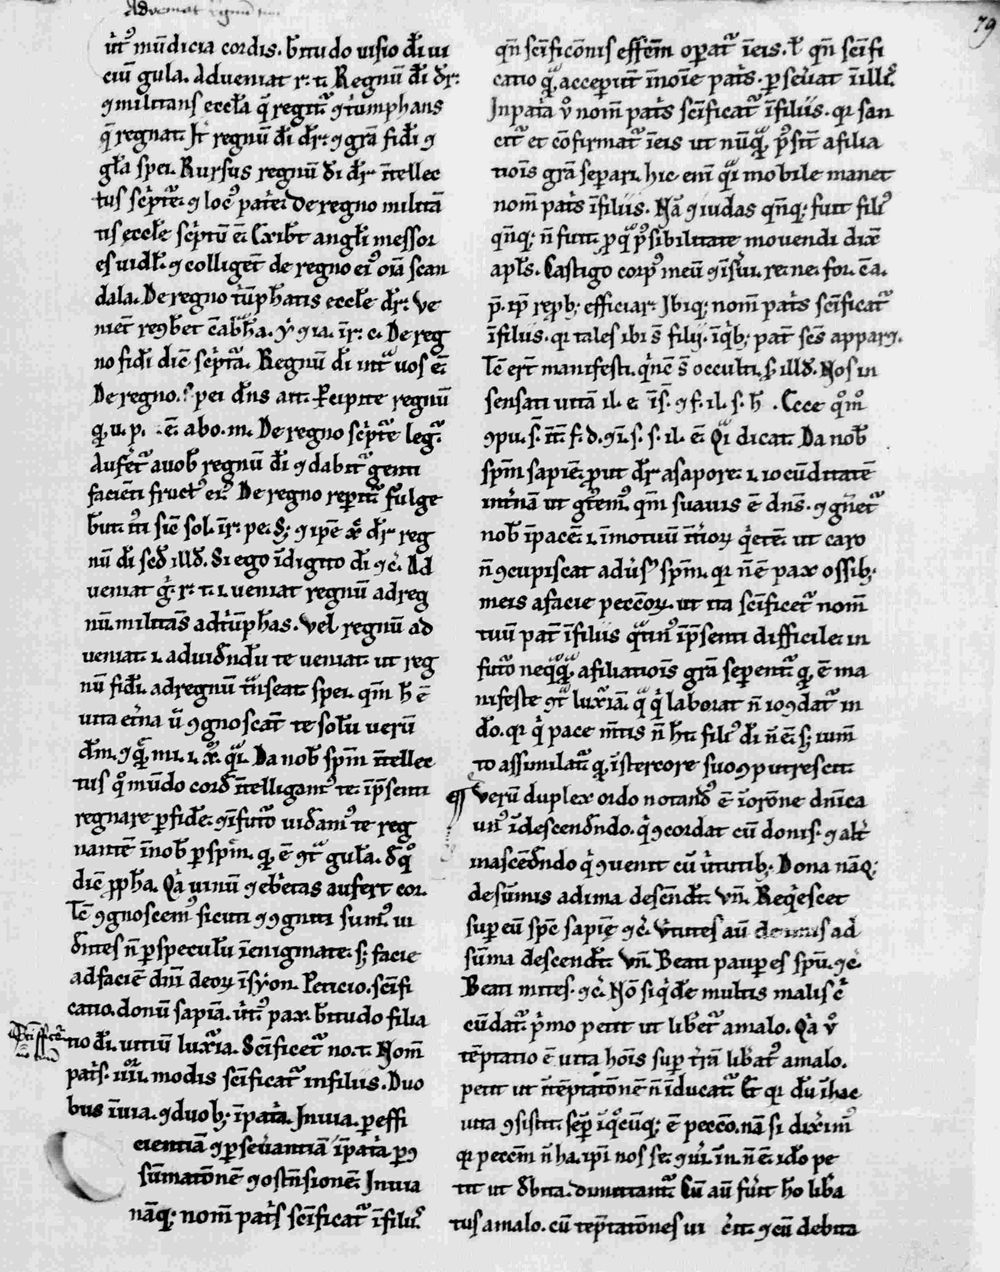 Adveniat regnum tuum
79
ūt᷒ mūdicia cordis. b̄titudo visio dī vi
ciū gula. Adveniat r. t. Regnū dī dr̄:
⁊militans eccła q̄ regit᷑ ⁊t̄umphans
q̄ regnat. Jt̄ regnū dī dr̄. ⁊ gr̄a fidī ⁊
gl̄a spei. Rursus regnū dī dr̄ ītellec
tus sc̄pt᷑e. ⁊ loc᷒ pat̄et. De regno militā
tis eccłe sc̄ptū ē. Exibt̄ angłi messor
es uidł. ⁊ colligēt de regno ei᷒ oīa scan
dala. De regno t̄ūphātis eccłe dr̄. Ve
niet reḡbet ē abh̄a. ⁊ ia. īr. c. De reg
no fidī diē sc̄pt᷑a. Regnū dī int̄ uos ē.
De regno spei dn̄s att. P̄cipite regnū
q. u. p. ē. abo. m. De regno sc̄pt᷑e leg᷑.
Aufēt᷑ auob̄ regnū dī ⁊ dabit᷑ genti
faciēti fruct᷒ ei᷒. De regno rep̄it᷑ fulge
būt. iti sic̄ sol. īr. pe. S; ⁊ ip̄e xp̄ dr̄ reg
nū dī sed̄ illd̄. Si ego īdigito dī ⁊c̄. Ad
veniat ḡ. r. t. i. veniat regnū adreg
nū militās adt̄ūphas. Vel regnū ad
veniat. i. adviđndū te veniat. ut reg
nū fidī adregnū t̄nseat spei. qm̄ h̄ ē
vita et̄na ū ⁊gnoscāt te solū verū
dm̄. ⁊ q̄ mi. i. x᷒. q̄. Da nob̄ spm̄ ītellec
tus q᷒ mūdo cord̄ ītelligam᷒ te. īp̄senti
regnare p̄ fidē. ⁊ īfut᷑o uidām᷒ te reg
nantē īnob̄ p̄ spm̄. q. ē ⁊t᷑ gulā. d̄ q᷒
diē pp̄ha. Q̄a uinū ⁊ eb̄etas aufert cor.
Tē ⁊gnoscem᷒ sicuti ⁊ ⁊gniti sum᷒. ui
d̄ntes n̄ p̄ speculū īenigmate. s; facie
adfaciē dn̄i deoꝝ īsyon. Peticio. sc̄ifi
catio. donū sapiā. ūt᷒ pax. b̄titudo filia
tio dī. uitiū luxīa. Sc̄ificet᷑ no. t. Nom̄
pat̄s. iiiī. modis sc̄ificat᷑ infiliis. Duo
bus īvia. ⁊ duob; īpat̄ia. Jnvia. p̄ effi
cientiā ⁊ p̄ sevantiā īpat̄ia p̄ ⁊
sūmatōnē ⁊ ostn̄sionē. Jnvia
nāq; nom̄ pat̄s sc̄ificat᷑ īfiliis.
qn̄ sc̄ificōnis effēm operat᷑ īeis. ł qn̄ sc̄ifi
catio q̄ acceper̄ūt īnoīe pat̄s. p̄ sēv̄at īillis.
Jnpat̄ia v᷒ nom̄ pat̄s sc̄ificat᷑ īfiliis. qr san
cit᷑ et cōfirmat᷑ īeis ut nūq̄ p᷒sit afilia
tiōis gr̄a separi. hic enī q̄i mobile manet
nom̄ pat̄s īfiliis. Nā ⁊ iudas qn̄q; fuit fili᷒
qn̄q; n̄ fuit. p̄ q̄ p᷒sibilitate movendi dix̄
apl̄s. Castigo corp᷒ meū ⁊ īs̄ui. re. ne. for. cā.
p̄. ip̄ rep̄b; efficiar. Jbiq; nom̄ pat̄s sc̄ificat᷑
īfiliis. qr tales ibi s̄ filij. īq̄b; pat̄ sc̄s apparꝫ.
Tē er̄t manifesti. q̄ nc̄ s̄ occulti. s. illd̄. Nos in
sensati vitā il. e īs̄. ⁊ f. il. s. h̄. Ecce q᷒m᷒
⁊pu. s. īt. f. d. ⁊ī. s. s. il. ē. Q̄i dicat. Da nob̄
spm̄ sapiē. put dr̄ asapore. i. iocūditatē
int̄nā ut g̊tem᷒ qm̄ suavis ē dn̄s. ⁊ gn̄et᷑
nob̄ īpacē. i. īmotuū t̄moꝝ q̄etē. ut caro
n̄ ⁊cupiscat adv̄s᷒ spm̄. qr n̄ ē pax ossib;
meis afacie pecc̄oꝝ. ut ita sc̄ificet᷑ nom̄
tuū pat̄ īfiliis q̄tin᷒ īp̄senti difficile. in
fut᷑o neq̄q̄ afiliatiōis gr̄a sep̄ent᷑. q ē ma
nifeste ⁊t᷑ luxīā. q̄ q̄ laborat n̄ io⁊dat᷑ in
dō. qr q̄ pacē m̄tis n̄ h̄t. fili᷒ dī n̄ ē. s; ium̄
to assimilat᷑ q̄ īstercore suo ⁊putrescit.
¶ Verū duplex ordo notand᷒ ē īorōne dn̄ica
un᷒ īdescendndo. q̄ ⁊cordat cū donis. ⁊ alt̄
inascendndo q̄ ⁊venit cū v̄tutib;. Dona nāq;
desūmis adima descēdt̄. Vn̄. Req̄escet
super eū spc̄ sapiē ⁊c̄. V̄tutes aū de imis ad
sūma descendt̄. Vn̄. Beati pauperes spū. ⁊c̄.
Beati mites. ⁊c̄. Nō siq̄de multis malis c̄
cūdat᷑. p̄mo petit ut libet᷑ amalo. Q̄a v᷒
tēptatio ē vita hōis sup t̄rā. libat᷒ amalo.
petit ut ītēptatōnē n̄ īducat᷑. Et qr dū īhac
vita ⁊sistit. sep̄ īq᷒cūq; ē pecc̄o. nā si dixim᷒
qr pecm̄ n̄ ha. ip̄i nos se. ⁊ vī. īn. n̄ ē. ido pe
tit ut d̄bita dimittant᷑. Cū aū fūit ho liba
tus amalo. cū tēptatōnes vi cīt. ⁊ cū debita